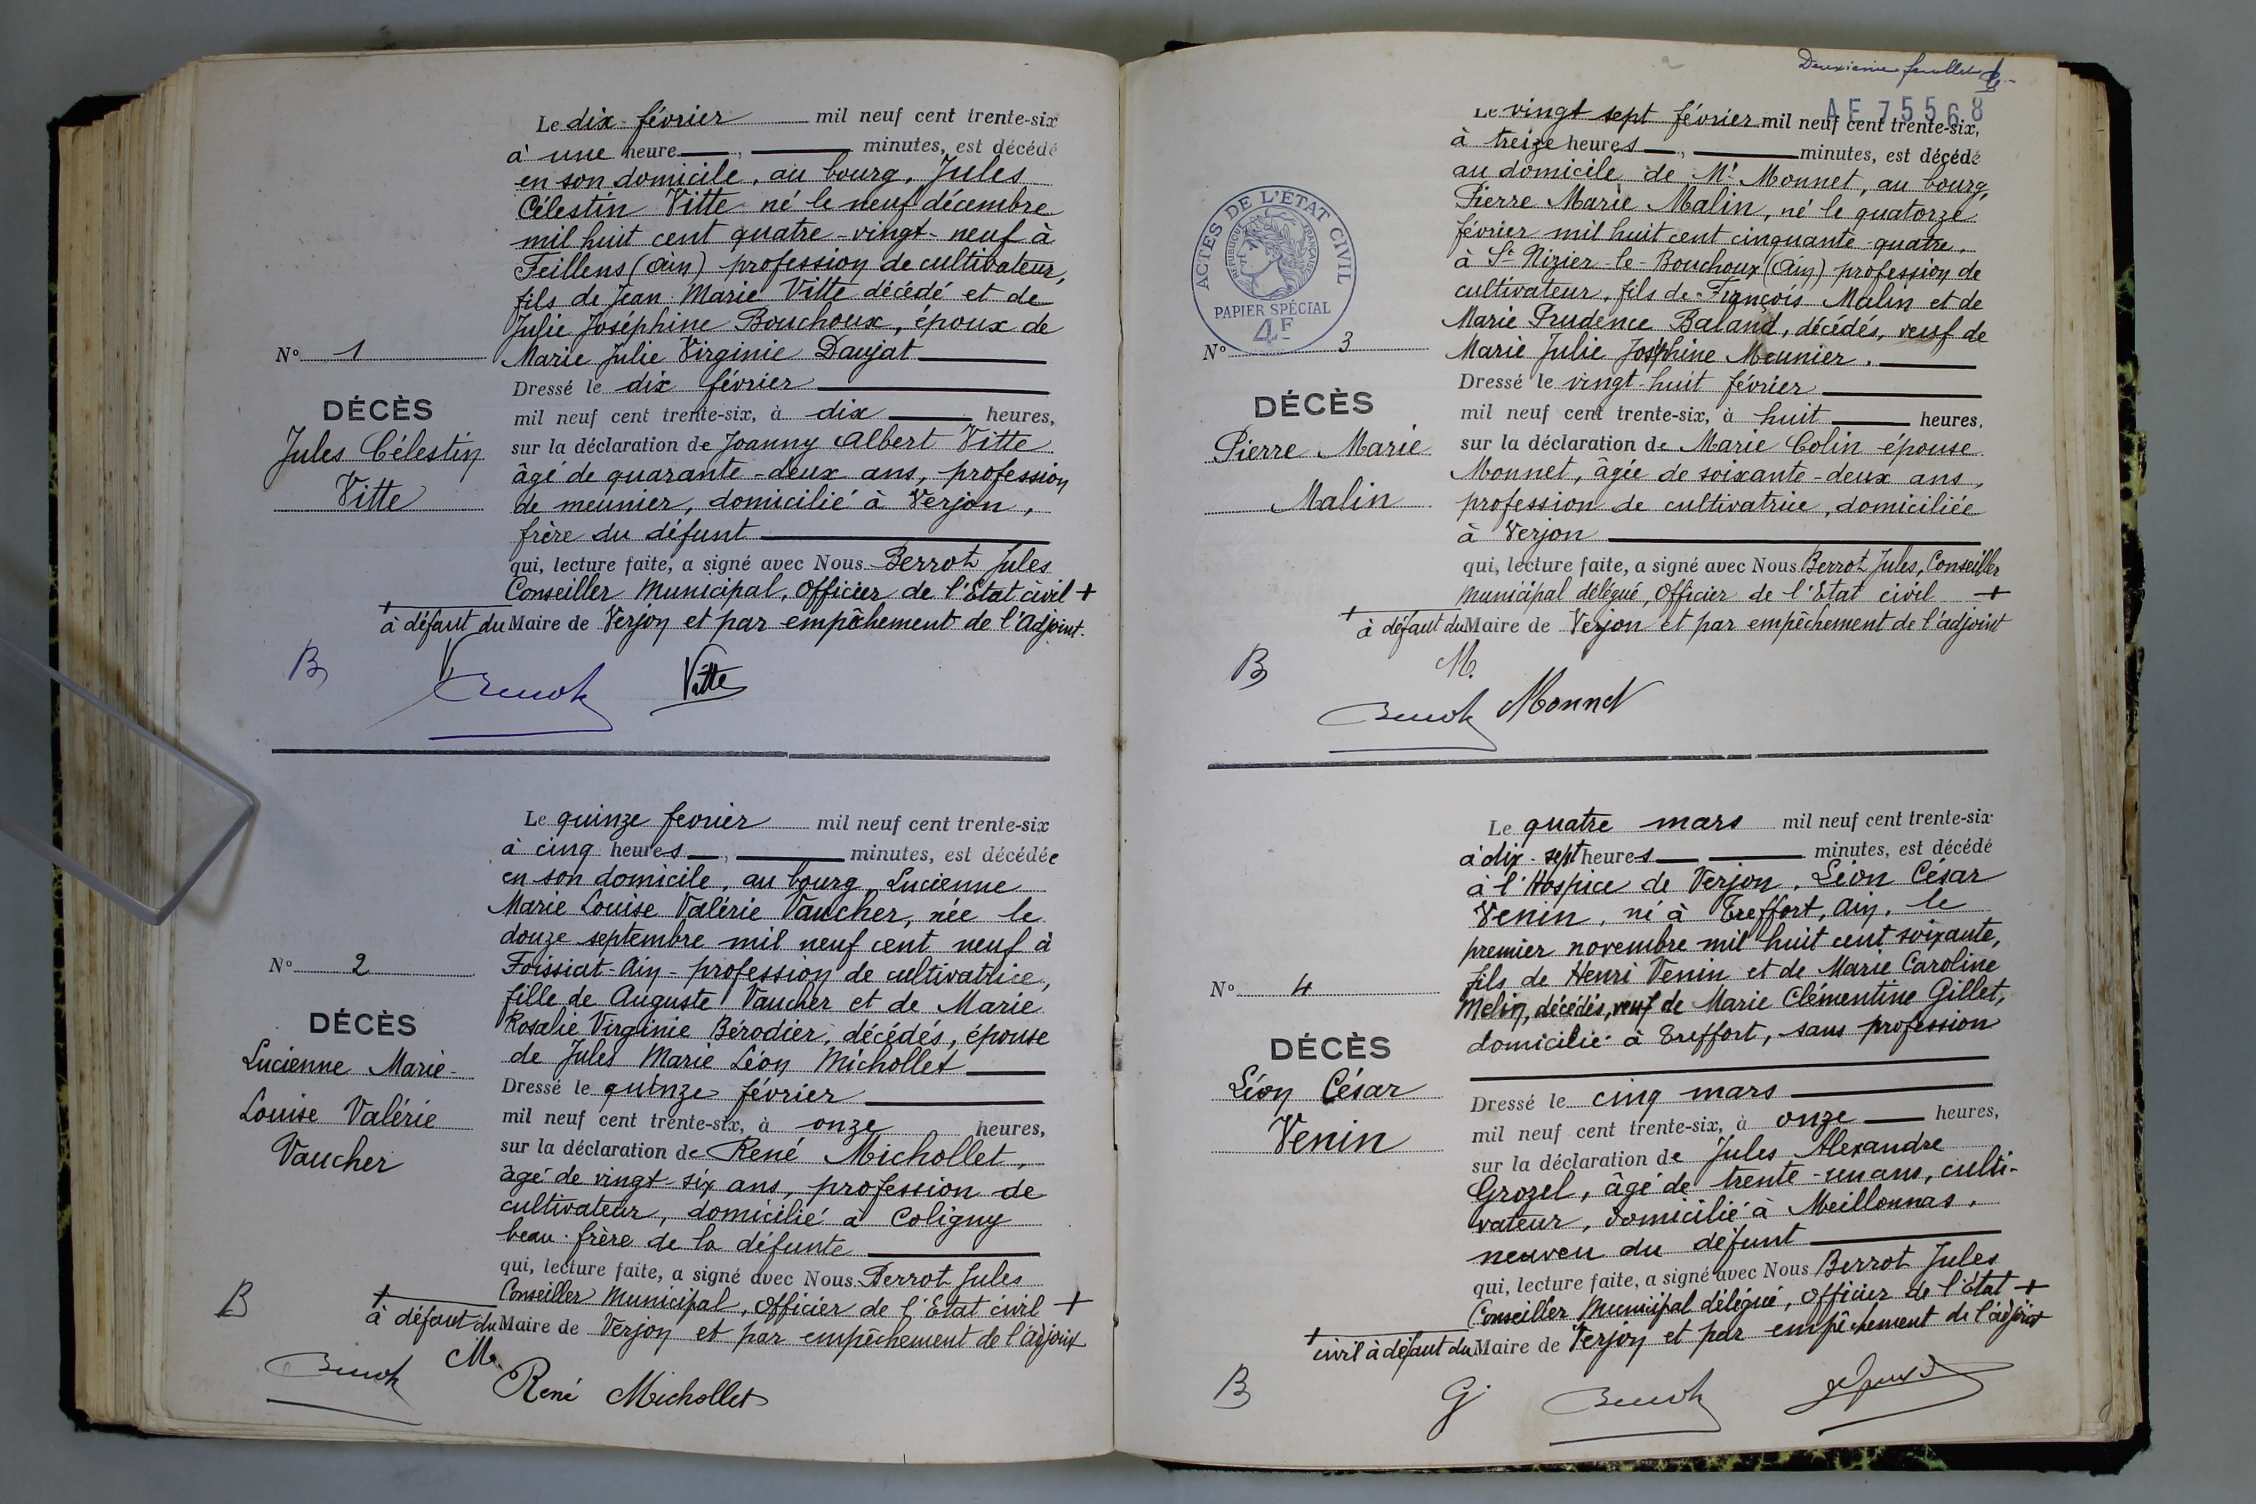 Le dix février mil neuf cent trente-six
à une heure, minutes, est décédé
en son domicile, au bourg, Jules
Célestin Vitte né le neuf décembre
mil huit cent quatre-vingt-neuf à
Feillens (Ain) profession de cultivateur,
fils de Jean Marie Vitte décédé et de
Julie Joséphine Bouchoux, époux de
N° 1
Marie Julie Virginie Daujat
Dressé le dix février
DÉCÈS
mil neuf cent trente-six, à dix heures,
Jules Célestin
sur la déclaration de Joanny Albert Vitte
âgé de quarante-deux ans, profession
Vitte
de meunier, domicilié à Verjon,
frère du défunt
qui, lecture faite, a signé avec Nous Berrot Jules
Conseiller Municipal, Officier de l'Etat civil +
+ à défaut du Maire de Verjon et par empêchement de l'Adjoint.
B V
Berrot Vitte
Le quinze fevrier mil neuf cent trente-six
à cinq heures, minutes, est décédée
en son domicile, au bourg Lucienne
Marie Louise Valérie Vaucher, née le
douze septembre mil neuf cent neuf à
N° 2
Foissiat-Ain-profession de cultivatrice,
fille de Auguste Vaucher et de Marie
DÉCÈS
Rosalie Virginie Berodier, décédés, épouse
Lucienne Marie-
de Jules Marie Léon Michollet
Dressé le quinze février
Louise Valérie
mil neuf cent trente-six, à onze heures,
Vaucher
sur la déclaration de René Michollet,
âgé de vingt six ans, profession de
cultivateur, domicilié à Coligny
beau-frère de la défunte
qui, lecture faite, a signé avec Nous Berrot Jules
Conseiller Municipal, Officier de l'Etat civil +
B
+ à défaut du Maire de Verjon et par empêchement de l'adjoint
Berrot M.
René Michollet
Deuxième feuillet
AE 75568
Le vingt sept février mil neuf cent trente-six,
à treize heures, minutes, est décédé
au domicile de Mr Monnet, au bourg,
Pierre Marie Malin, né le quatorze
février mil huit cent cinquante-quatre,
à St Nizier-le-Bouchoux (Ain) profession de
cultivateur, fils de François Malin et de
Marie Prudence Baland, décédés, veuf de
ACTES DE L'ÉTAT CIVIL
RÉPUBLIQUE FRANÇAISE
PAPIER SPÉCIAL
4F
N° 3
Marie Julie Joséphine Meunier.
Dressé le vingt-huit février
DÉCÈS
mil neuf cent trente-six, à huit heures,
Pierre Marie
sur la déclaration de Marie Colin épouse
Monnet, âgée de soixante-deux ans,
Malin
profession de cultivatrice, domiciliée
à Verjon
qui, lecture faite, a signé avec Nous Berrot Jules, Conseiller
Municipal délégué, Officier de l'Etat civil +
+ à défaut du Maire de Verjon et par empêchement de l'adjoint
B M.
Berrot Monnet
Le quatre mars mil neuf cent trente-six
à dix-sept heures, minutes, est décédé
à l'Hospice de Verjon, Léon César
Venin, né à Treffort, Ain, le
premier novembre mil huit cent soixante,
fils de Henri Venin et de Marie Caroline
N° 4
Melin, décédés, veuf de Marie Clémentine Gillet,
domicilié à Treffort, sans profession
DÉCÈS
Léon César
Dressé le cinq mars
Venin
mil neuf cent trente-six, à onze heures,
sur la déclaration de Jules Alexandre
Grozel, âgé de trente-un ans, culti-
vateur, domicilié à Meillonnas,
neuveu du défunt
qui, lecture faite, a signé avec Nous Berrot Jules
Conseiller Municipal délégué, Officier de l'Etat +
+ civil à défaut du Maire de Verjon et par empêchement de l'adjoint
B G Berrot